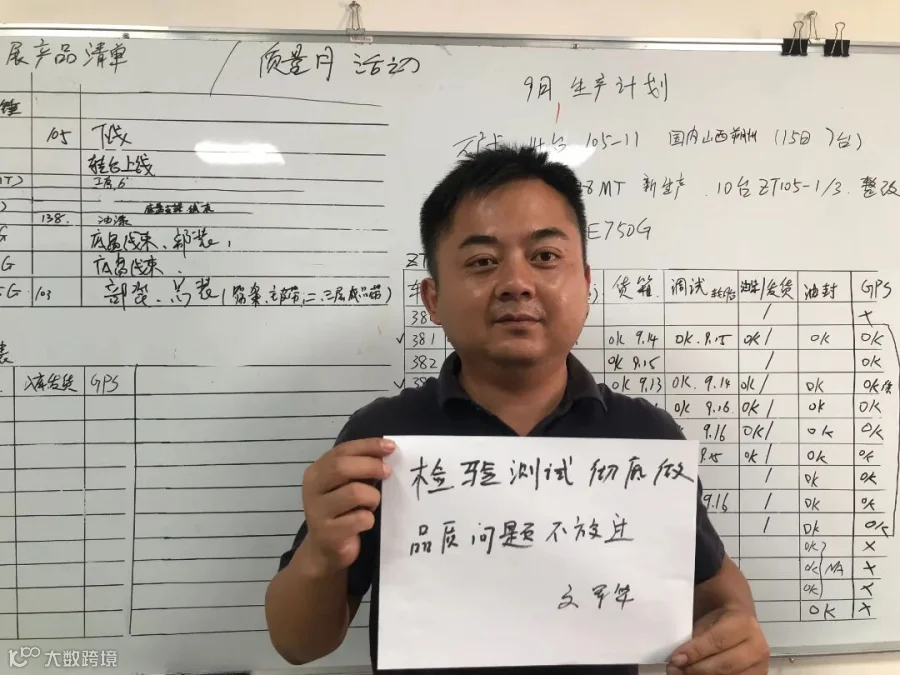 展产品清单
质量月活动
9月生产计划
105-11 国内山西朔州（15日 7台）
105 下线
转台上线
8MT 新生产. 10台ZT105-1/3. 整改
138. 油漆
E750G
底盘线束、部装,
底盘线束.
103 部装、总装
货箱 调试 发货 油封 GPS
/ X
✓ 381 OK 9.14 OK. 9.15 OK / OK OK
382 OK 9.15 / OK
OK 9.13 OK. 9.14 OK / OK OK
入库发货 GPS
OK 9.16. OK / OK OK
9.16 OK/ OK OK
9.15 OK / OK OK
/ OK OK
9.16 / OK OK
/ OK OK
OK X
OK NA X
OK X
OK X
检验测试彻底做
品质问题不放过
大数跨境